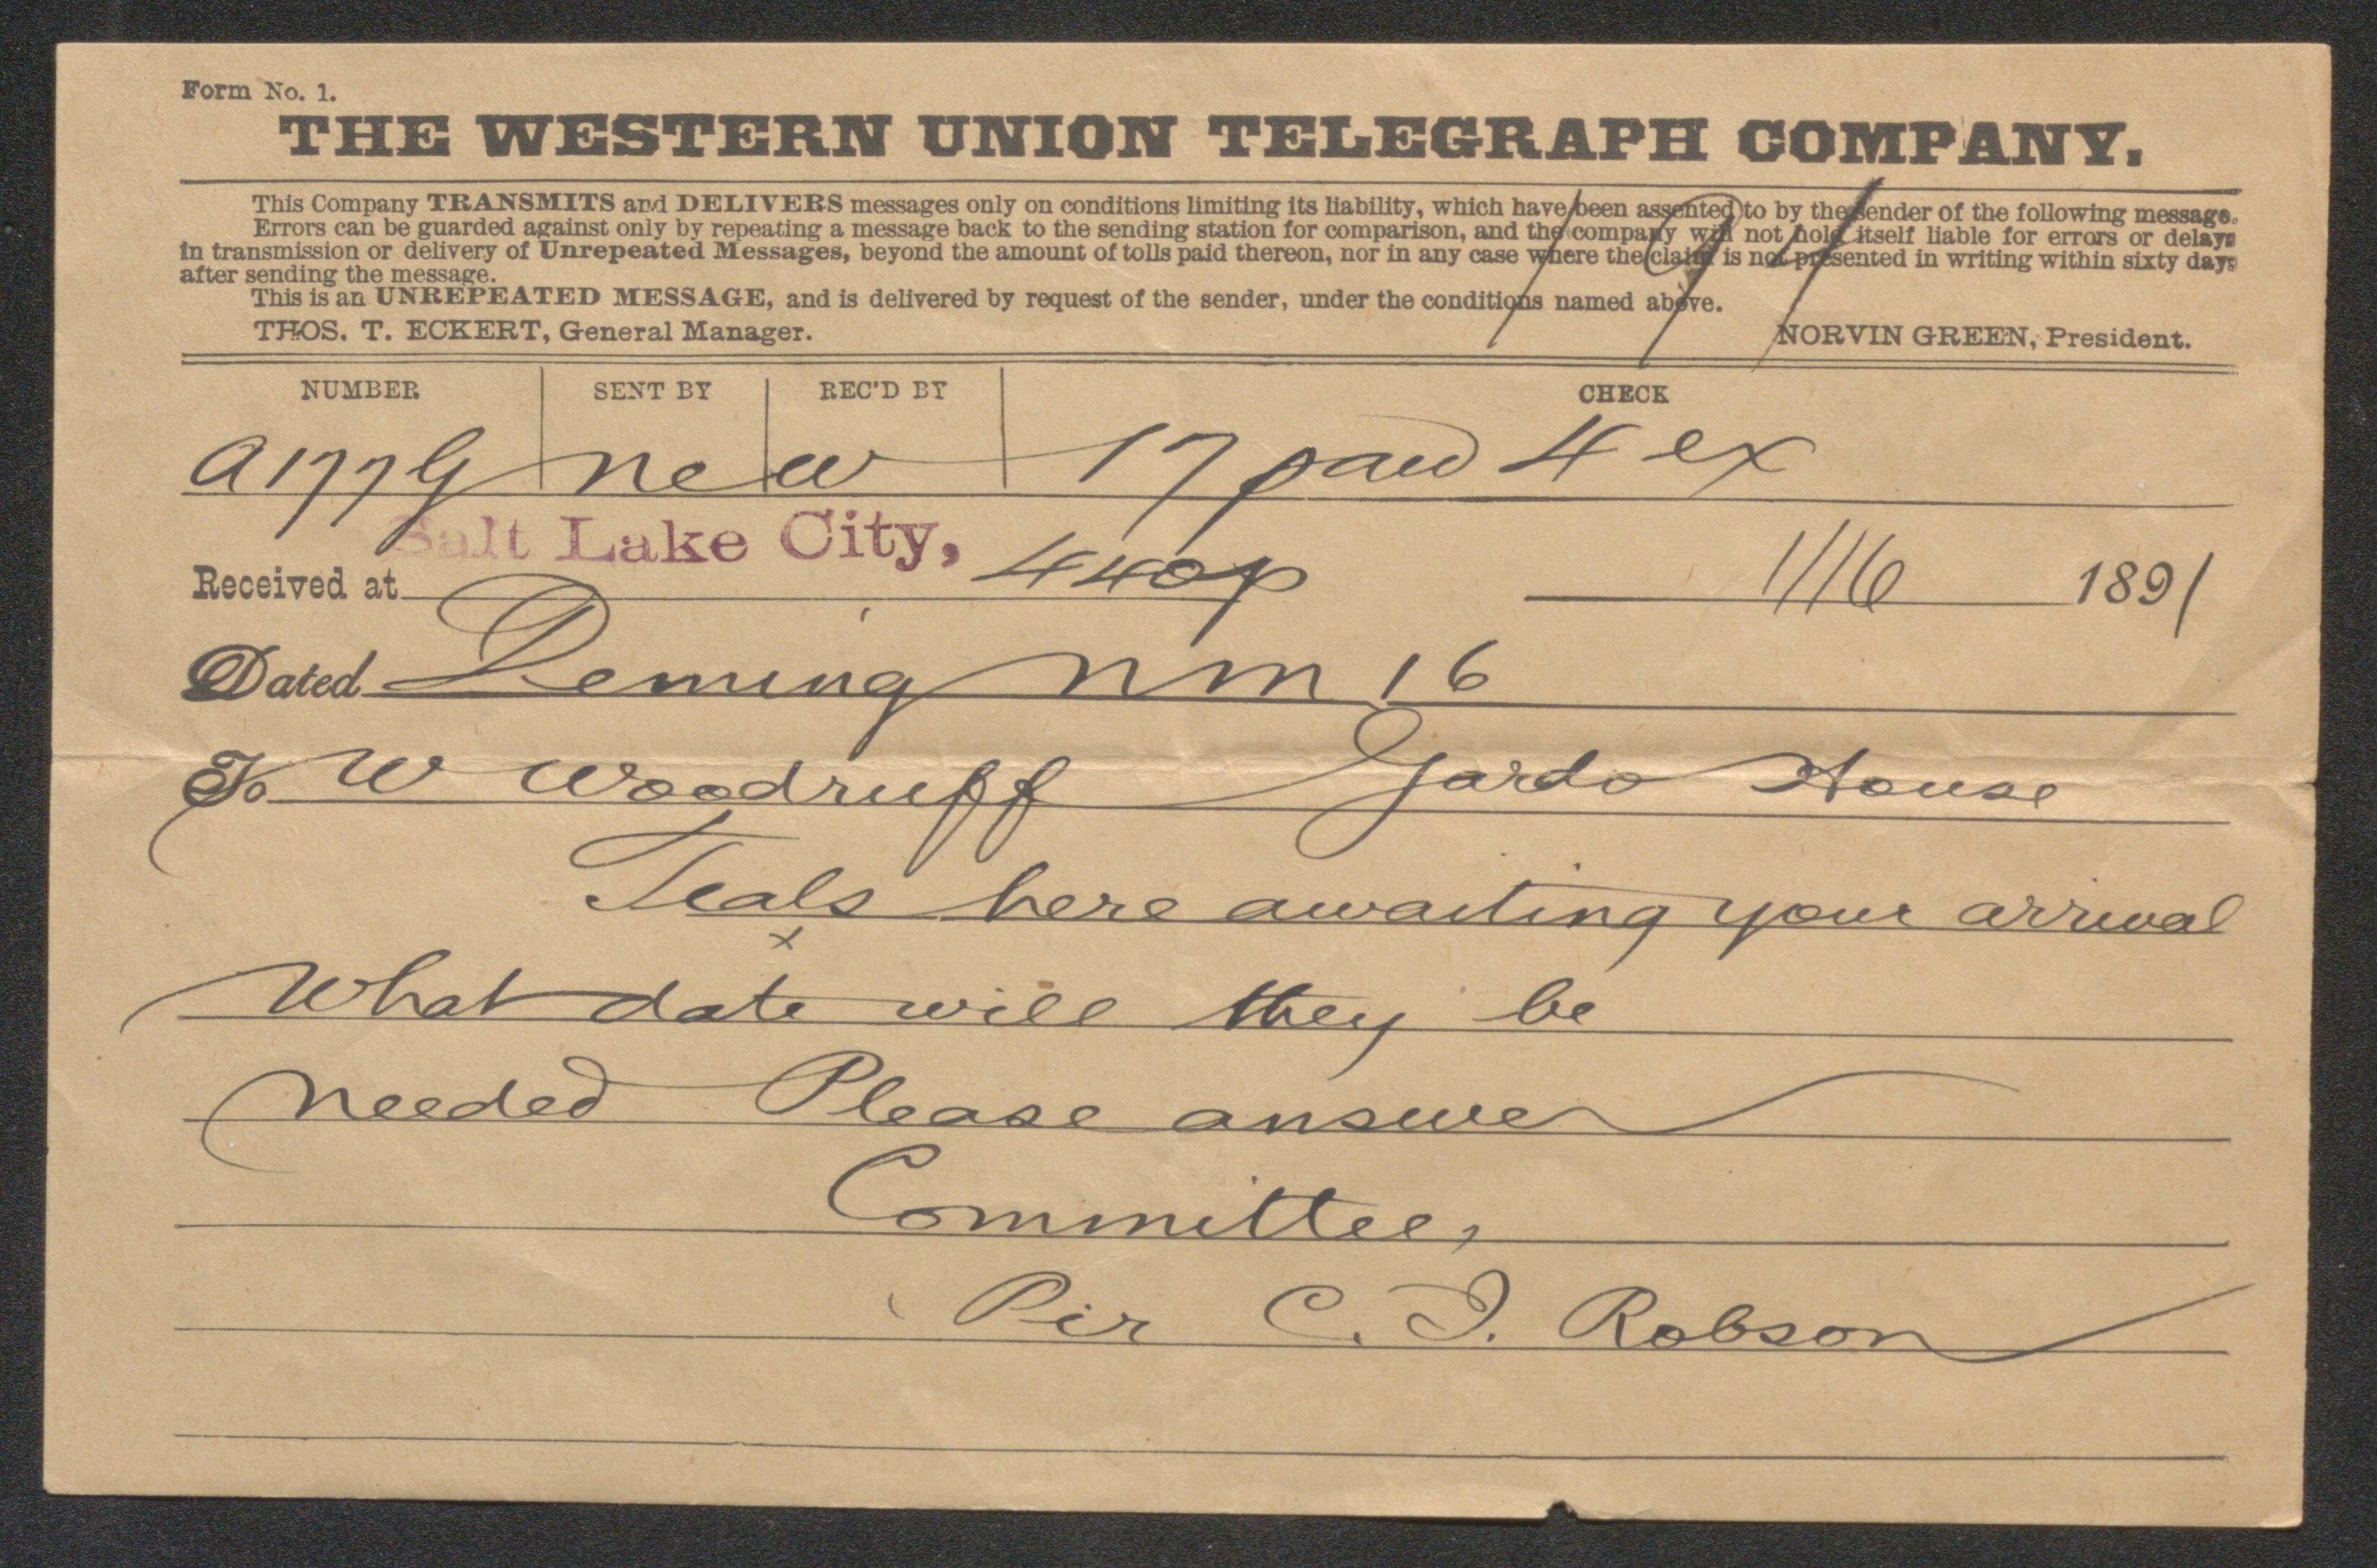 Form No. 1.
THE WESTERN UNION TELEGRAPH COMPANY.
This Company TRANSMITS and DELIVERS messages only on conditions limiting its liability, which have been assented to by the sender of the following message.
Errors can be guarded against only by repeating a message back to the sending station for comparison, and the company will not hold itself liable for errors or delays
in transmission or delivery of Unrepeated Messages, beyond the amount of tolls paid thereon, nor in any case where the claim is not presented in writing within sixty days
after sending the message.
This is an UNREPEATED MESSAGE, and is delivered by request of the sender, under the conditions named above.
THOS. T. ECKERT, General Manager. NORVIN GREEN, President.
NUMBER SENT BY REC'D BY CHECK
a177G ne w 17 paid 4 ex
Salt Lake City,
Received at 440p 1/16 1891
Dated Deming nm 16
To W Woodruff Gardo House
Teals here awaiting your arrival
x
What date will they be
needed Please answer
Committee,
Per C. I. Robson